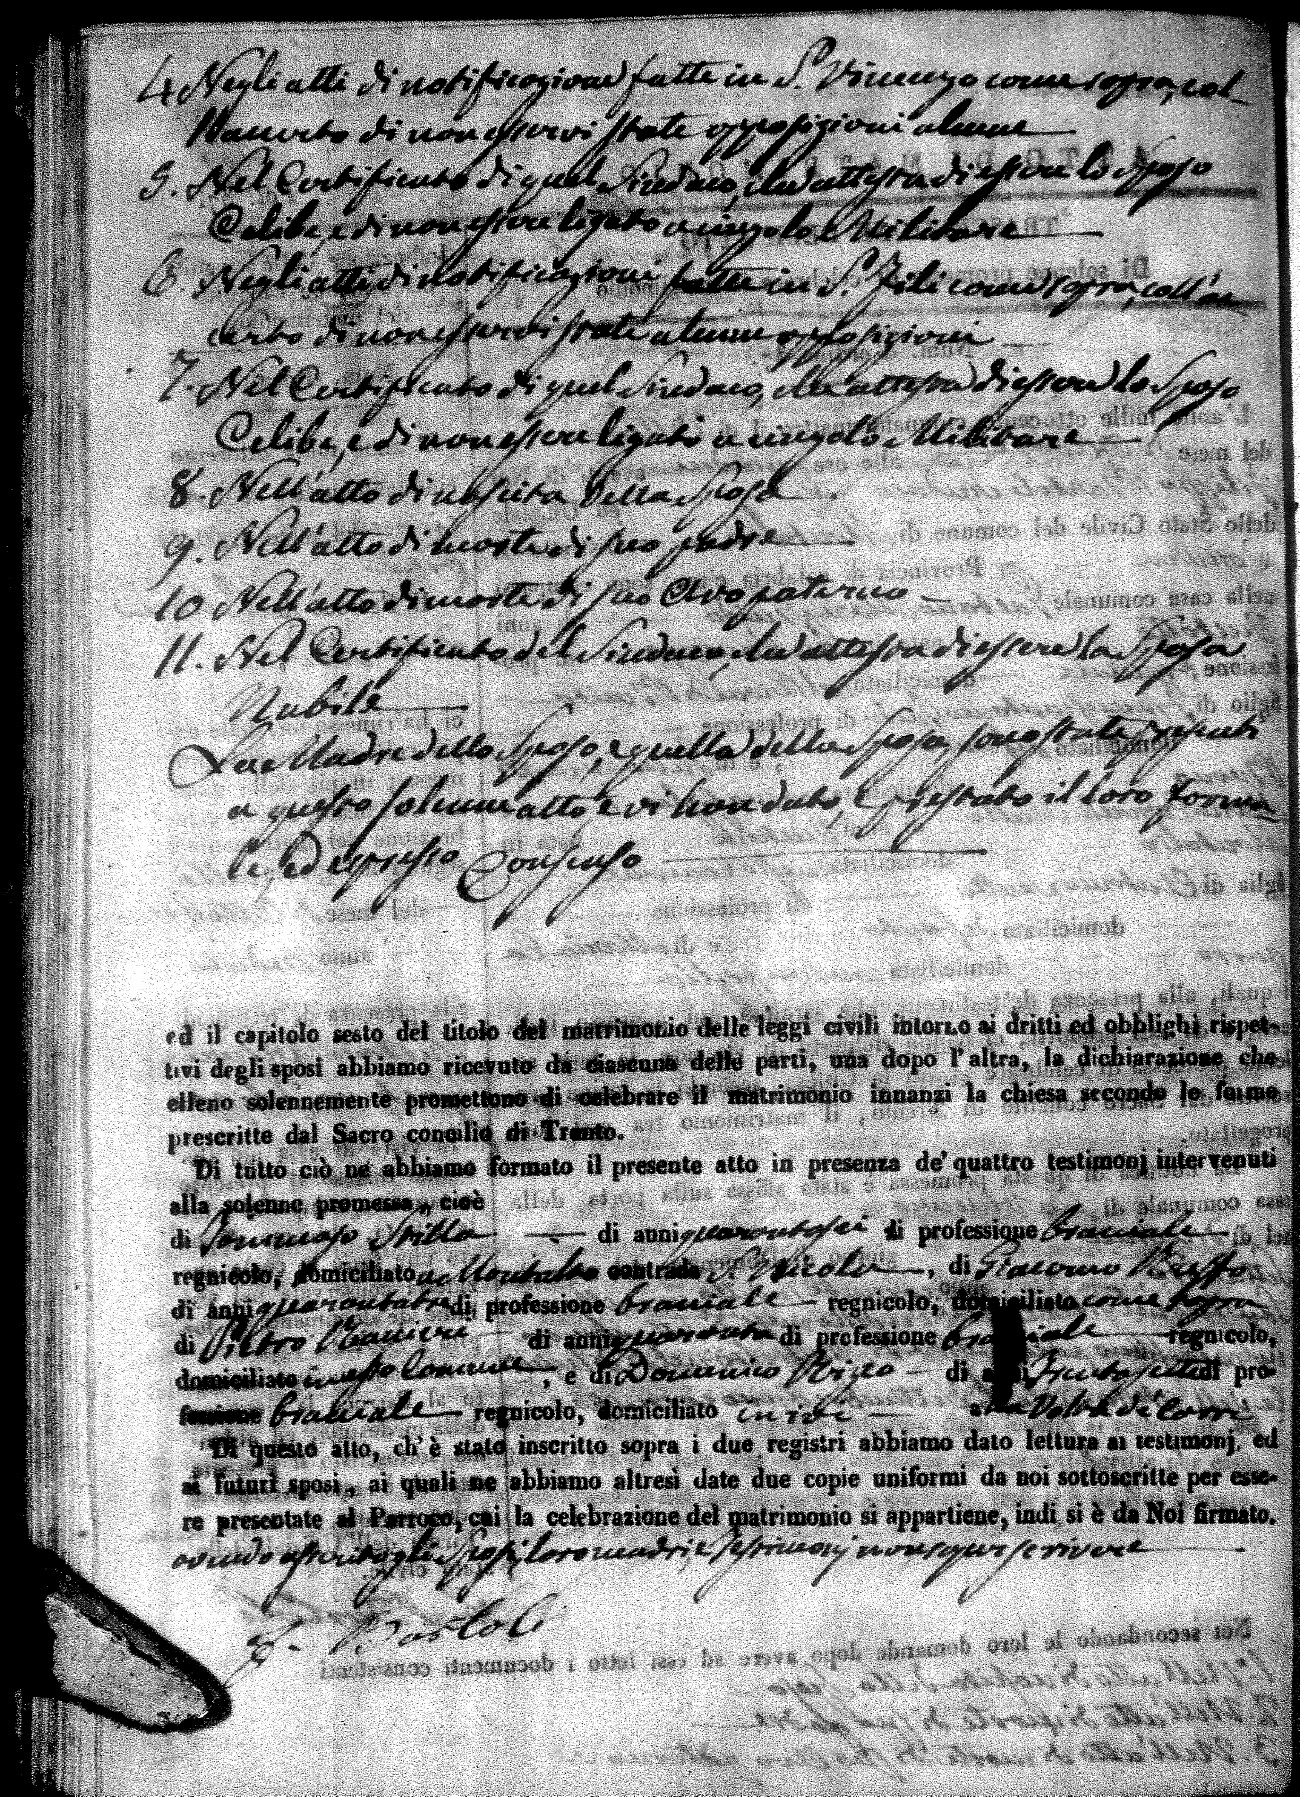 4. Negli atti di notificazione fatte in S. Vincenzo come sopra, col-
l'accerto di non esservi state opposizioni alcune
5. Nel Certificato di quel Sindaco, che attesta di essere lo Sposo
Celibe, e di non essere ligato a cingolo Militare
6. Negli atti di notificazioni fatte in S. Fili come sopra, coll'ac
certo di non esservi state alcune opposizioni
7. Nel Certificato di quel Sindaco, che attesta di essere lo Sposo
Celibe, e di non essere ligato a cingolo Militare
8. Nell'atto di nascita della Sposa
9. Nell'atto di morte di suo padre
10 Nell'atto di morte di suo Avo paterno
11. Nel Certificato del Sindaco, che attesta di essere la Sposa
Nubile
La Madre dello Sposo, e quella della Sposa, sono state presenti
a questo solenne atto e vi han dato, e prestato il loro forma
le, ed espresso Consenso
ed il capitolo sesto del titolo del matrimonio delle leggi civili intorno ai dritti ed obblighi rispet-
tivi degli sposi abbiamo ricevuto da ciascuna delle parti, una dopo l'altra, la dichiarazione, che
elleno solennemente promettono di celebrare il matrimonio innanzi la chiesa secondo le forme
prescritte dal Sacro concilio di Trento.
Di tutto ciò ne abbiamo formato il presente atto in presenza de' quattro testimonj intervenuti
alla solenne promessa, cioè
di Tommaso Stilla di anni quarantasei di professione bracciale
regnicolo, domiciliato a Montalto contrada S. Nicola, di Giacomo Russo
di anni quarantatre di professione bracciale regnicolo, domiciliato come sopra
di Pietro Ranieri di anni quaranta di professione bracciale regnicolo,
domiciliato in questo Comune, e di Domenico Rizzo di anni trentasette di pro-
fessione bracciale regnicolo, domiciliato in
Di questo atto, ch'è stato inscritto sopra i due registri abbiamo dato lettura ai testimonj, ed
ai futuri sposi, ai quali ne abbiamo altresì date due copie uniformi da noi sottoscritte per esse-
re presentate al Parroco, cui la celebrazione del matrimonio si appartiene, indi si è da Noi firmato.
avendo asserito gli Sposi, loro madri, e testimonj non saper scrivere
Bartoli